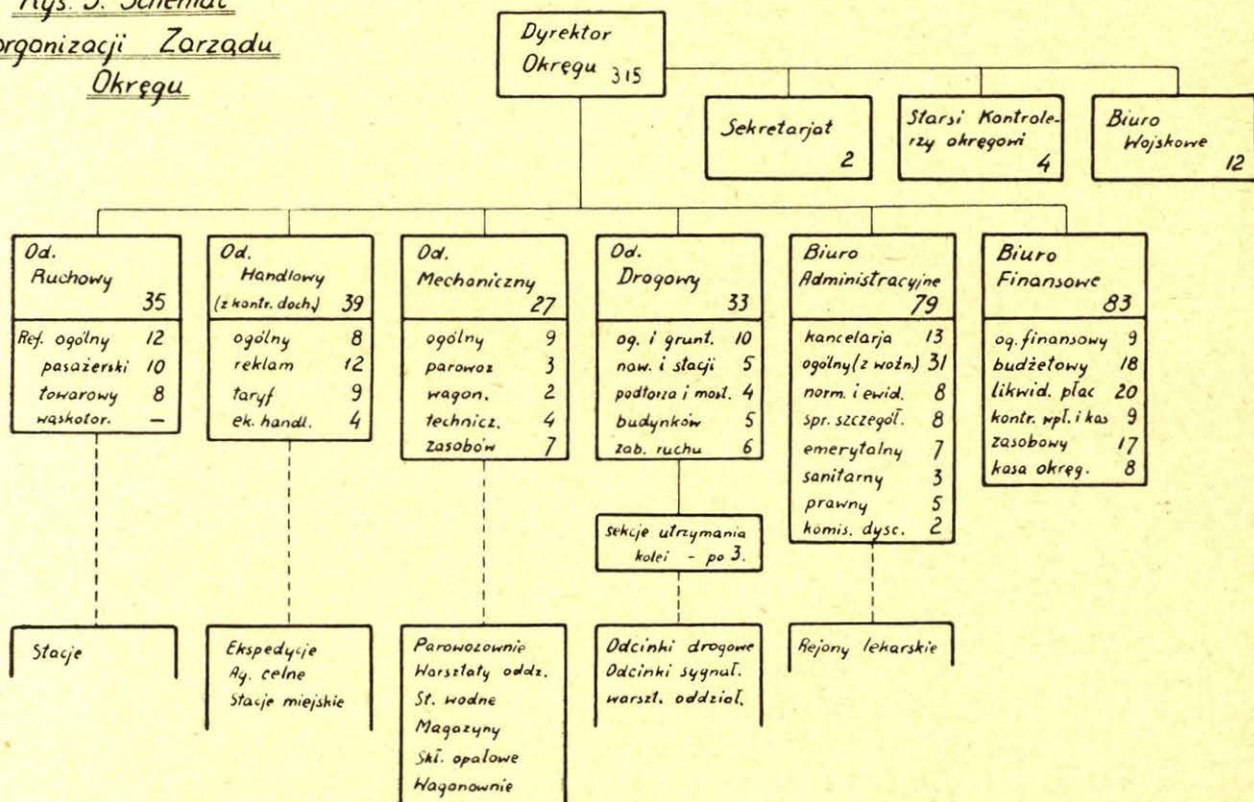 Rys. 5. Schemat
organizacji Zarządu
Okręgu
Dyrektor
Okręgu 315
Sekretarjat
2
Starsi Kontrole-
rzy okręgowi
4
Biuro
Wojskowe
12
Od.
Ruchowy
35
Ref. ogólny 12
pasażerski 10
towarowy 8
wąskotor. —
Od.
Handlowy
(z kontr. doch.) 39
ogólny 8
reklam 12
taryf 9
ek. handl. 4
Od.
Mechaniczny
27
ogólny 9
parowoz 3
wagon. 2
technicz. 4
zasobów 7
Od.
Drogowy
33
og. i grunt. 10
naw. i stacji 5
podtorza i most. 4
budynków 5
zab. ruchu 6
Biuro
Administracyjne
79
kancelarja 13
ogólny (z woźn.) 31
norm. i ewid. 8
spr. szczegół. 8
emerytalny 7
sanitarny 3
prawny 5
komis. dysc. 2
Biuro
Finansowe
83
og. finansowy 9
budżetowy 18
likwid. płac 20
kontr. wpł. i kas 9
zasobowy 17
kasa okręg. 8
sekcje utrzymania
kolei - po 3.
Stacje
Ekspedycje
Ag. celne
Stacje miejskie
Parowozownie
Warsztaty oddz.
St. wodne
Magazyny
Skł. opałowe
Wagonownie
Odcinki drogowe
Odcinki sygnał.
warszt. oddział.
Rejony lekarskie